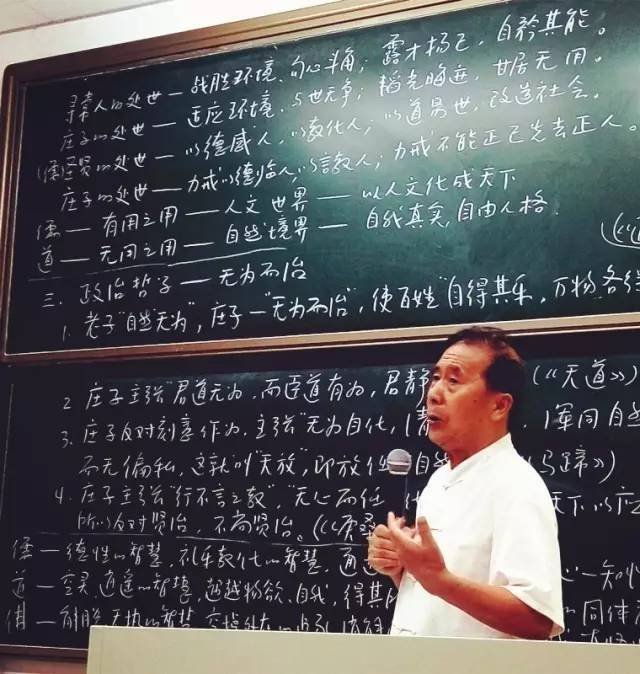 寻常人的处世—战胜环境、勾心斗角；露才扬己，自矜其能。
庄子的处世—适应环境、与世无争；韬光晦迹，甘居无用。
儒圣贤的处世—以德感人，以教化人；以道易世，改造社会。
庄子的处世—力戒以德临人，以言教人；力戒不能正己先去正人。
儒—有用之用—人文世界—以人文化成天下
道—无用之用—自然境界—自我真实，自由人格.
三. 政治哲学—无为而治
1. 老子"自然无为"，庄子—"无为而治"，使百姓"自得其乐，万物各得
2. 庄子主张"君道无为，而臣道有为，君静 (《天道》)
3. 庄子反对刻意作为，主张"无为自化， 浑同自
而无偏私，这就叫"天放"，即放任自 马蹄》)
4. 庄子主张"行不言之教"，"无心而任 天下以应
所以反对贤治，不尚贤治。(《庚桑
儒—德性的智慧，礼乐教化的智慧，通 一知
道—空灵、逍遥的智慧，超越物欲、自我，得其 同体
佛—解脱、无执的智慧，